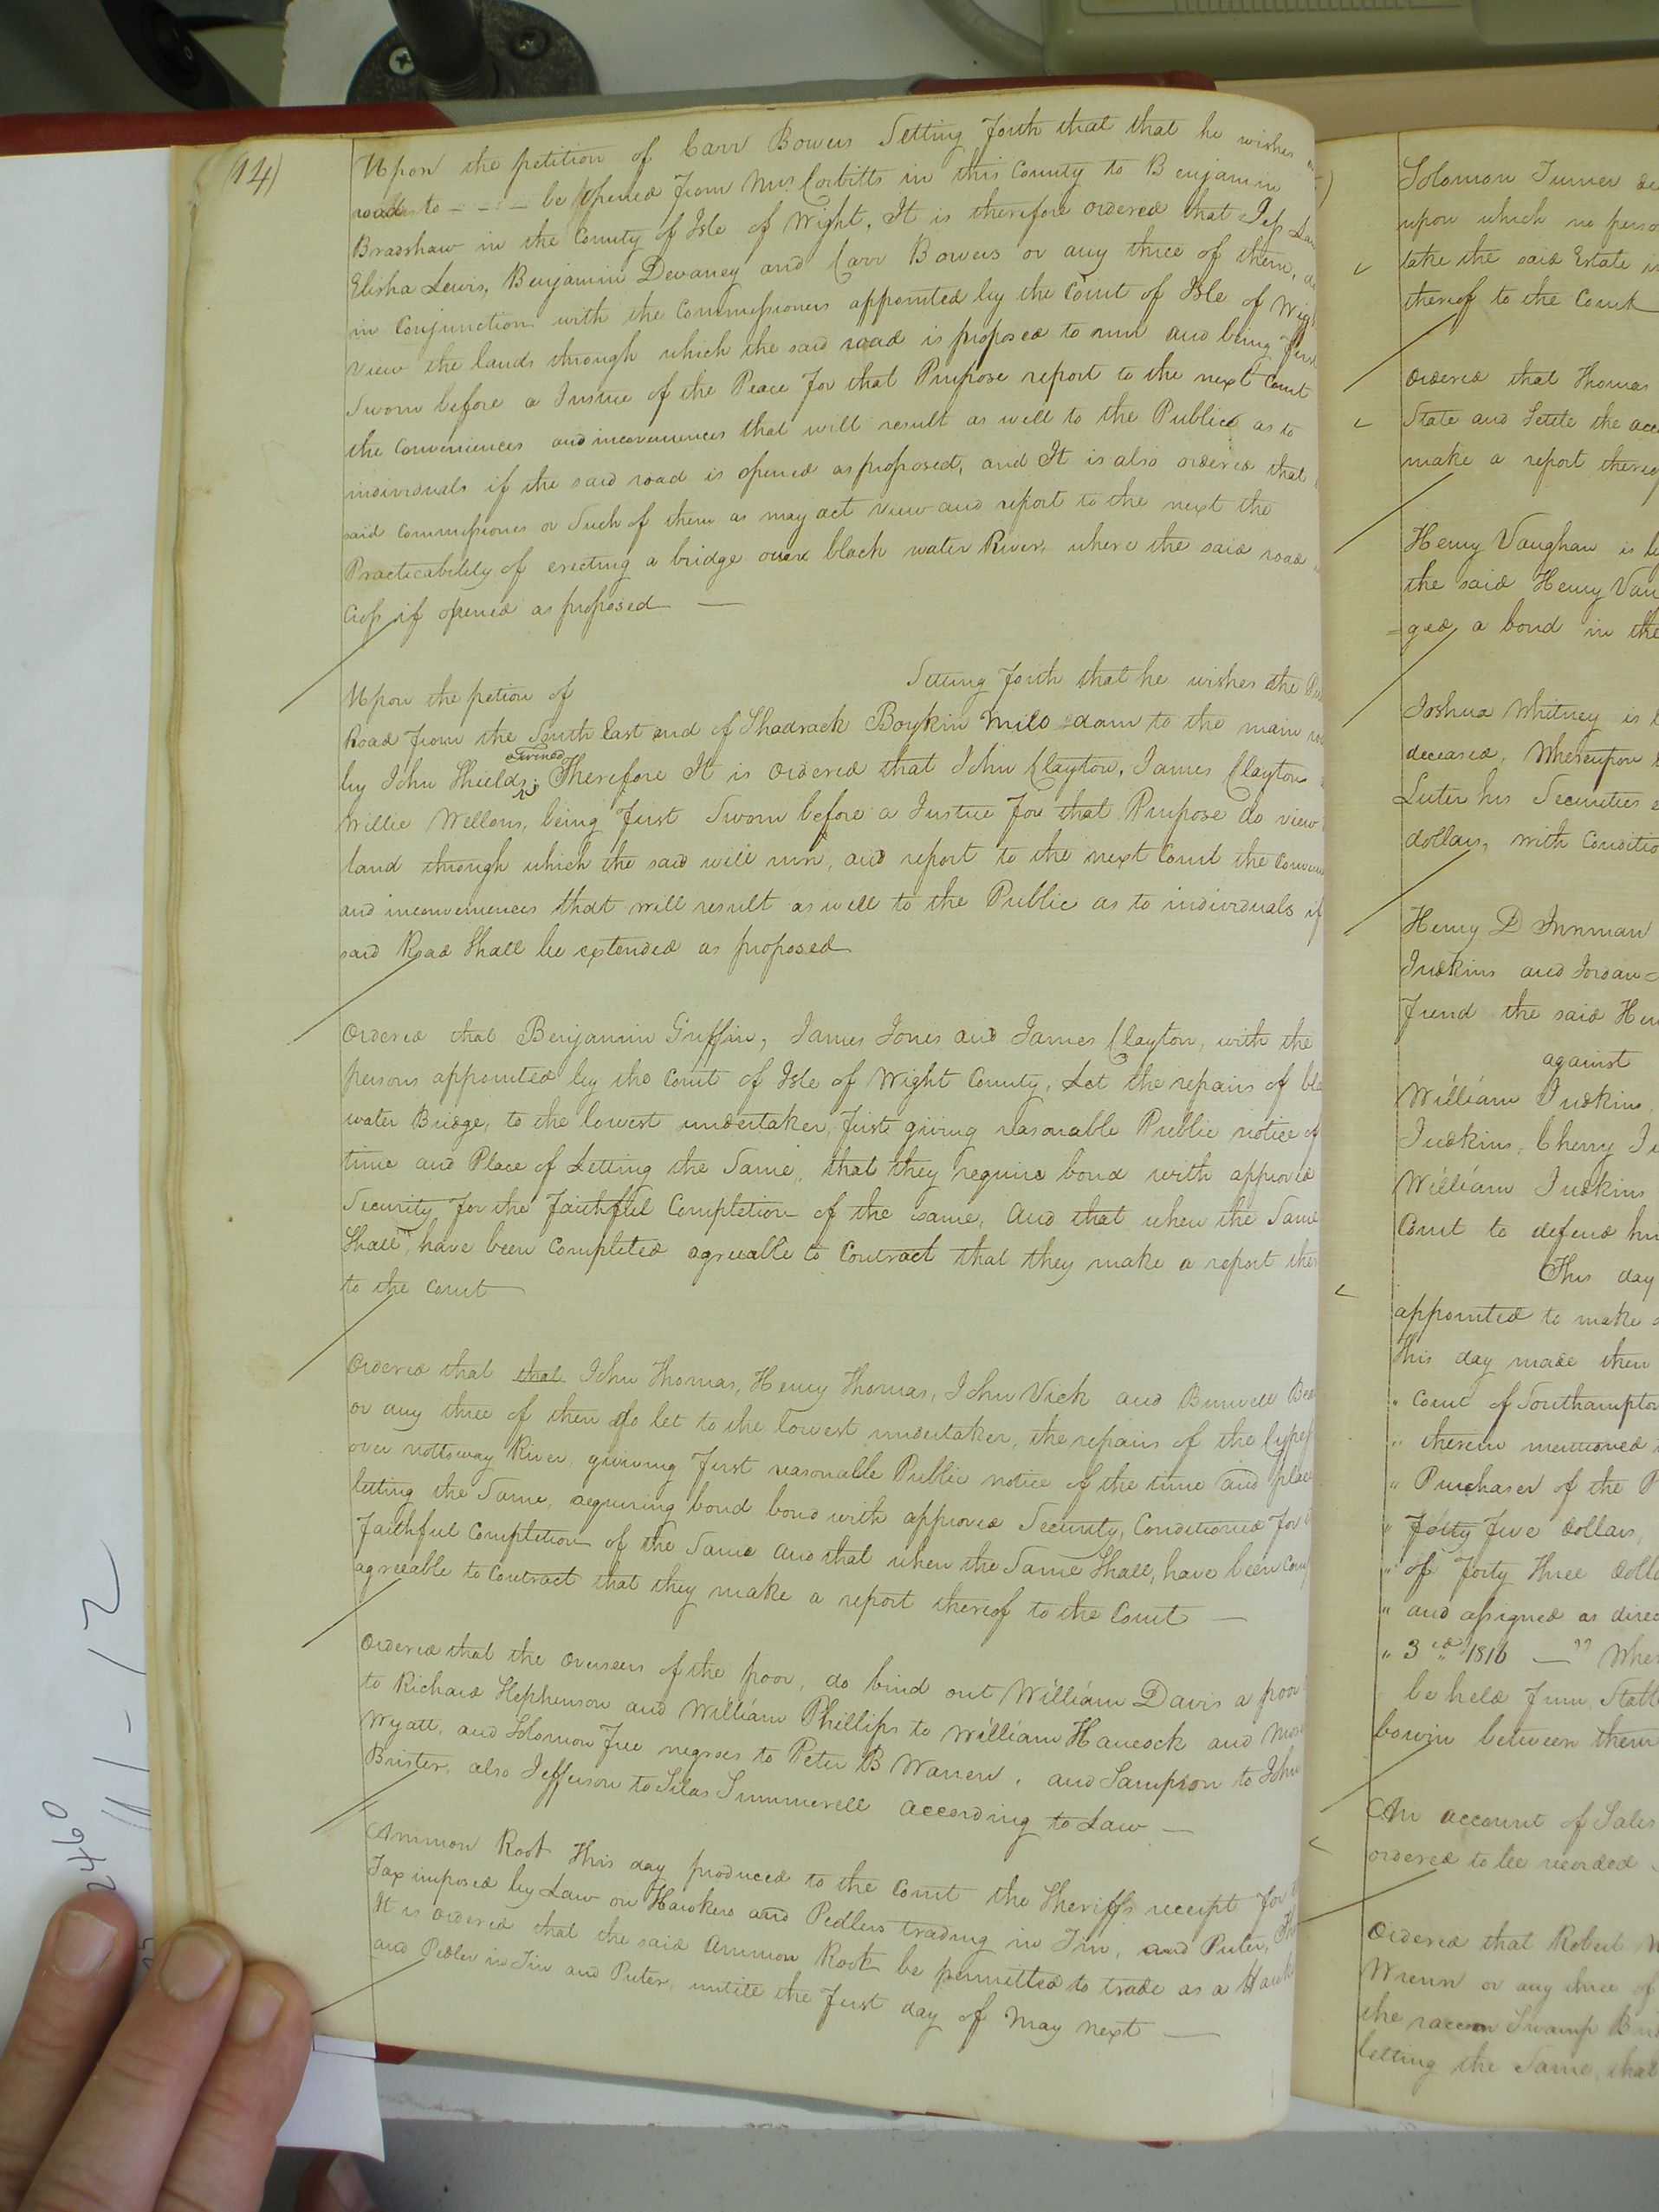 (14)
Upon the petition of Carr Bowers Setting forth that that he wishes
road to - - - be opened from Mrs Corbitts in this County to Benjamin
Bradshaw in the County of Isle of Wight, It is therefore ordered that
Elisha Lewis, Benjamin Devaney and Carr Bowers or any three of them,
in Conjunction with the Commissioners appointed by the Court of Isle of Wig
view the lands through which the said road is proposed to run and being first
Sworn before a Justice of the Peace for that Purpose report to the next Court
the Conveniences and inconveniences that will result as well to the Public as to
individuals if the said road is opened as proposed, and It is also ordered that
said Commissioners or Such of them as may act view and report to the next the
Practicability of erecting a bridge over black water River, where the said road
Cross if opened as proposed —
Upon the petion of Setting forth that he wishes the
Road from the South East end of Shadrack Boykin Mill dam to the main
by John Shields; Therefore It is Ordered that John Clayton, James Clayton
Willie Wellons, being first Sworn before a Justice for that Purpose do view
land through which the said will run, and report to the next Court the
and inconveniences that will result as well to the Public as to individuals if
said Road Shall be extended as proposed
Ordered that Benjamin Griffin, James Jones and James Clayton, with the
persons appointed by the Court of Isle of Wight County, Let the repairs of bla
water Bridge, to the lowest undertaker, first giving reasonable Public notice of
time and Place of Letting the Same, that they require bond with approved
Security for the faithful Completion of the same, And that when the Same
Shall, have been Completed agreeable to Contract that they make a report ther
to the Court
Ordered that that John Thomas, Henry Thomas, John Vick and Burwell
or any three of them do let to the lowest undertaker, the repairs of the
over nottoway River, giving first reasonable Public notice of the time and plac
letting the Same, requiring bond bond with approved Security, Conditioned for
faithful Completion of the Same and that when the Same Shall, have been Com
agreeable to Contract that they make a report thereof to the Court —
Ordered that the Overseers of the poor, do bind out William Davis a poor
to Richard Stephenson and William Phillips to William Hancock and
Wyatt, and Solomon free negroes to Peter B Warren, and Sampson to John
Brister, also Jefferson to Silas Summerell according to Law —
Ammon Root This day produced to the Court the Sheriffs receipt for
Tax imposed by Law on Hawkers and Pedlers trading in Tin, and Puter,
It is ordered that the said Ammon Root be permitted to trade as a Hawk
and Pedler in Tin and Puter, untill the first day of May next —
Solomon Turner de
upon which no perso
take the said Estate in
thereof to the Court
Ordered that Thomas
State and Settle the acc
make a report thereo
Henry Vaughan is
the said Henry Vau
=ged, a bond in the
Joshua Whitney is
deceased, Whereupon
Luter his Securities
dollars, with Conditio
Henry D Innman
Judkins and Jordan
friend the said Hen
against
William Judkins
Judkins, Cherry Ju
William Judkins
Court to defend hi
This day
appointed to make
this day made then
" Court of Southampton
" therein mentioned
" Purchaser of the P
" forty five dollars,
" of forty three dolla
" and assigned as direc
" 3rd 1816 —" Wher
be held
between them
An account of Sales
ordered to be recorded
Ordered that Robert
Wrenn or any three of
the raccon Swamp Bri
letting the Same, that
2460
11-12